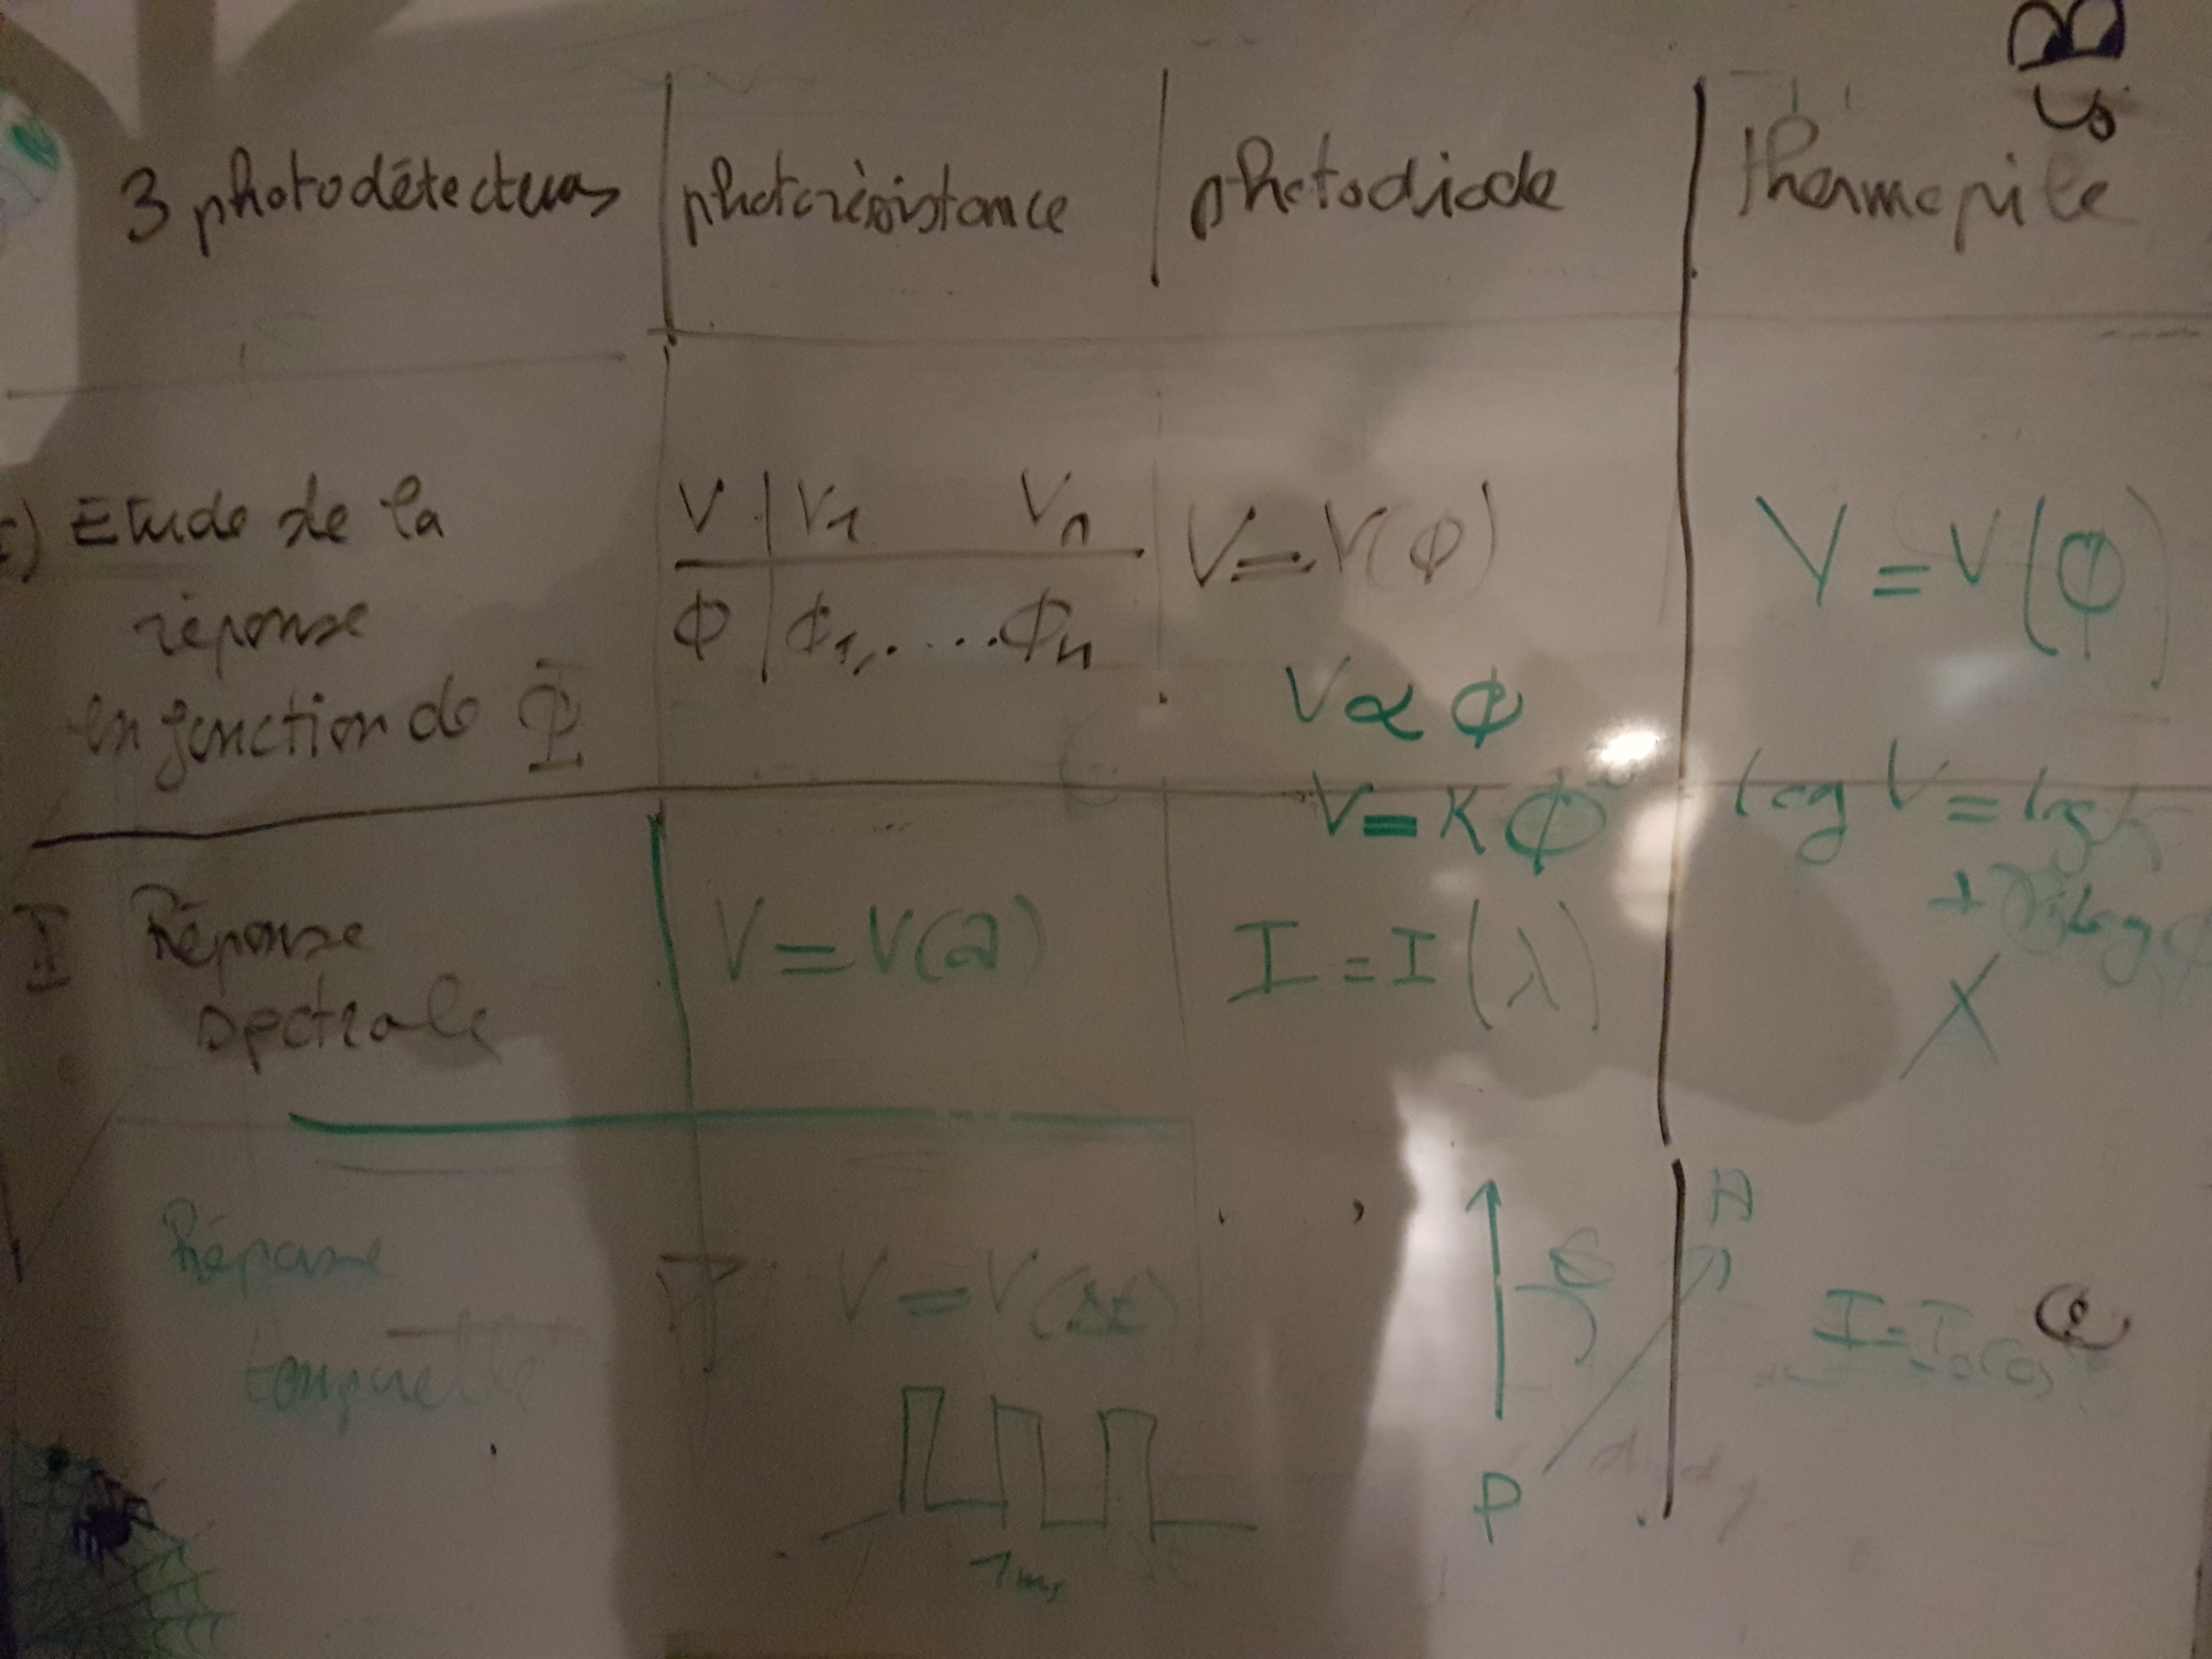 3 photodétecteurs photorésistance photodiode thermopile
I) Etude de la
réponse
en fonction de Φ
V V1 Vn
Φ Φ1, . ... Φn
V = V(Φ)
V ∝ Φ
V = K Φ
V = V(Φ)
log V = log K
+ γ log Φ
II Réponse
spectrale
V = V(λ)
I = I(λ)
X
Réponse
temporelle
V = V(Δt)
1 ms
P
A
I = I0 cos